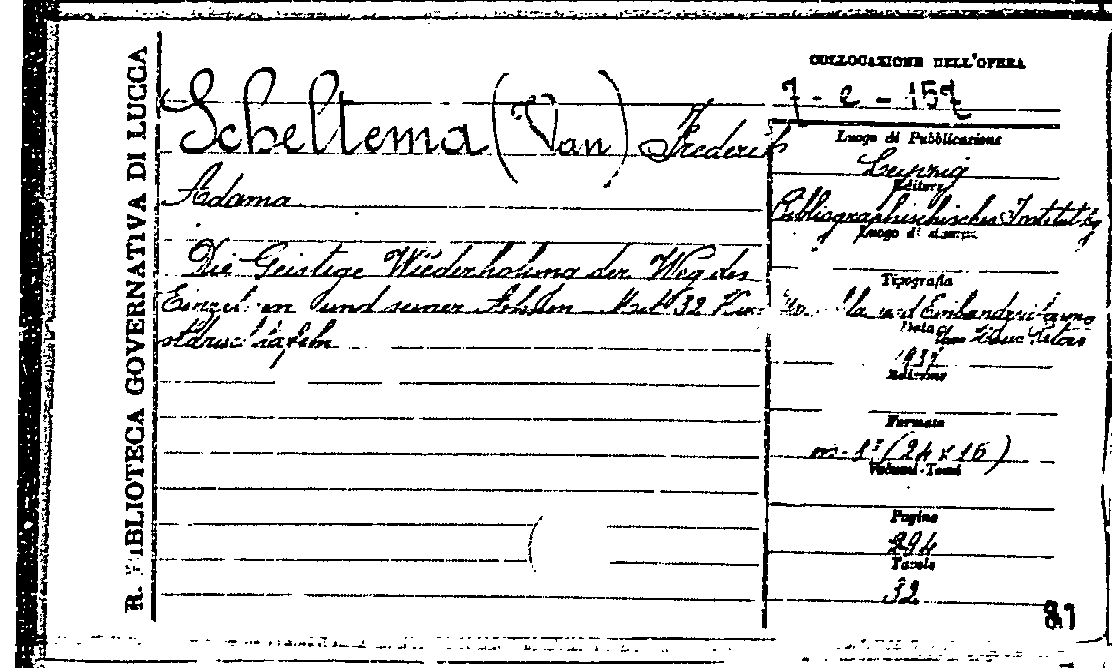 R. BIBLIOTECA GOVERNATIVA DI LUCCA
Scheltema (Van) Frederik
Adama
Die Geistige Wiederholung der Weg des
Einzelnen und seiner Ahnen Mit 32 Kun-
stdrucktafeln
COLLOCAZIONE DELL'OPERA
7 - e - 157
Luogo di Pubblicazione
Leipzig
Editore
Bibliographischisches Institut
Luogo di stampa
Tipografia
und Einbandzeichnung
Data
1937
Edizione
Formato
(24 x 16)
Volumi-Tomi
Pagine
294
Tavole
32
81